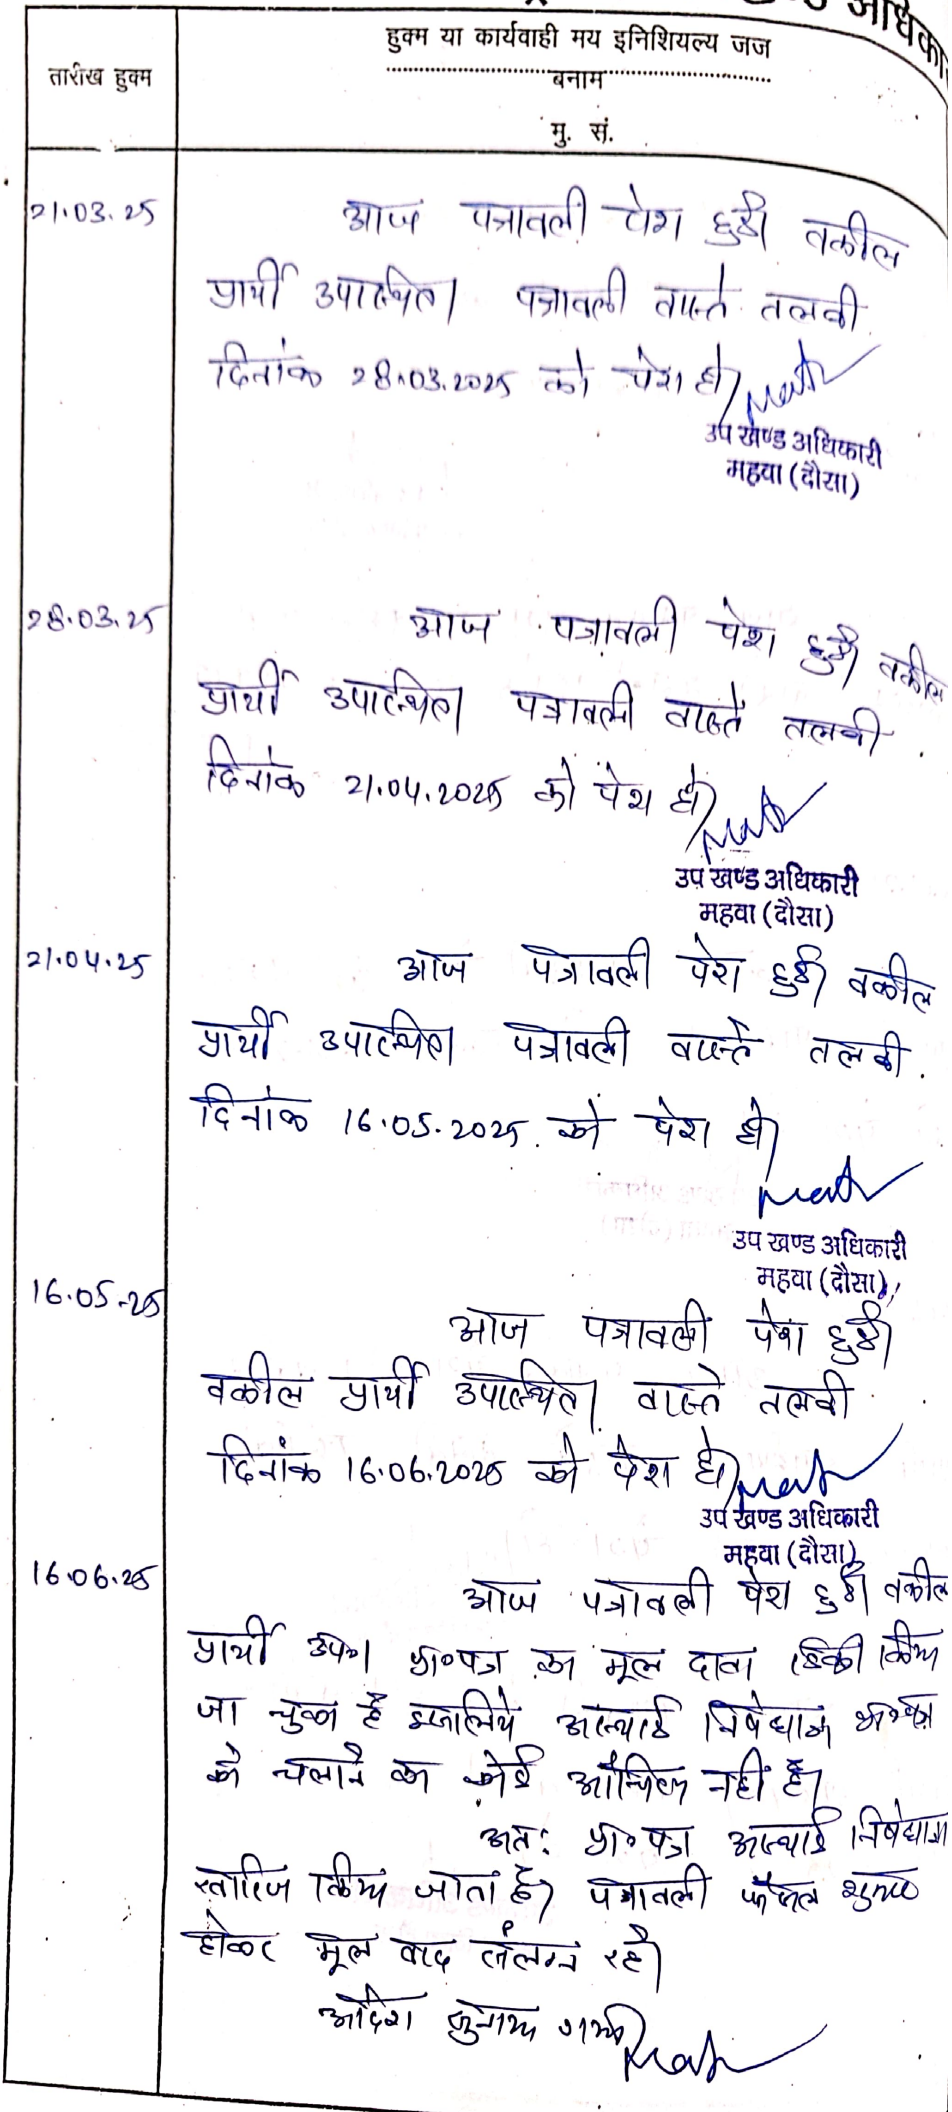 तारीख हुक्म
हुक्म या कार्यवाही मय इनिशियल्य जज
बनाम
मु. सं.
21.03.25
आज पत्रावली पेश हुई। वकील
प्रार्थी उपस्थित। पत्रावली वास्ते तलबी
दिनांक 28.03.2025 को पेश हो।
उप खण्ड अधिकारी
महवा (दौसा)
28.03.25
आज पत्रावली पेश हुई। वकील
प्रार्थी उपस्थित। पत्रावली वास्ते तलबी
दिनांक 21.04.2025 को पेश हो।
उप खण्ड अधिकारी
महवा (दौसा)
21.04.25
आज पत्रावली पेश हुई। वकील
प्रार्थी उपस्थित। पत्रावली वास्ते तलबी
दिनांक 16.05.2025 को पेश हो।
उप खण्ड अधिकारी
महवा (दौसा)
16.05.25
आज पत्रावली पेश हुई।
वकील प्रार्थी उपस्थित। वास्ते तलबी
दिनांक 16.06.2025 को पेश हो।
उप खण्ड अधिकारी
महवा (दौसा)
16.06.25
आज पत्रावली पेश हुई। वकील
प्रार्थी उप०। प्रा०पत्र का मूल दावा डिक्री किया
जा चुका है इसलिये अस्थाई निषेधाज्ञा प्रा०पत्र
को चलाने का कोई औचित्य नहीं है।
अतः प्रा०पत्र अस्थाई निषेधाज्ञा
खारिज किया जाता है। पत्रावली फैसल शुमार
होकर मूल वाद संलग्न रहे।
आदेश सुनाया गया।